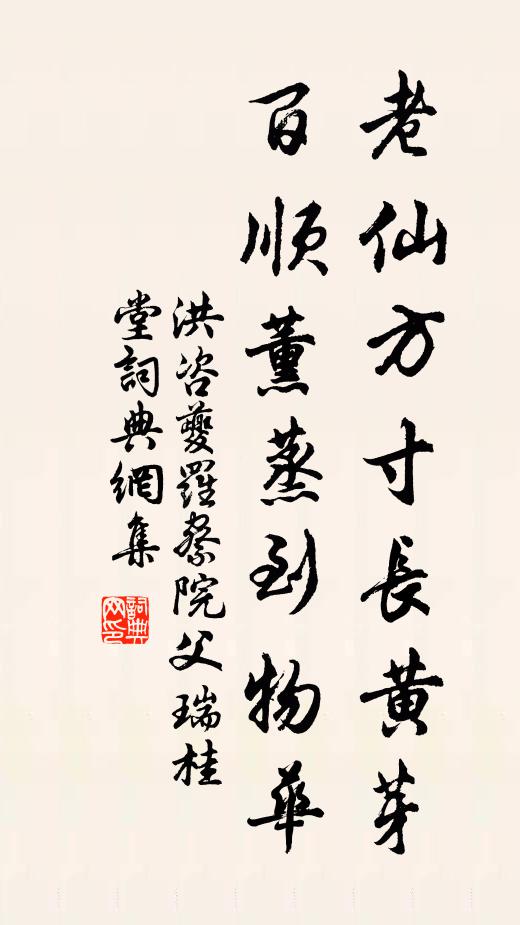 老仙方寸長黃芽
百順薰蒸到物華
洪咨夔羅察院父瑞桂
堂詞典網集
詞典網印